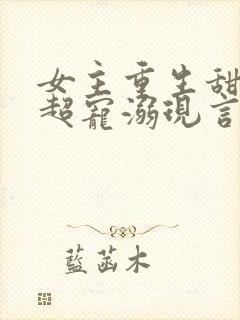 女主重生甜
超寵溺現言
藍菡木